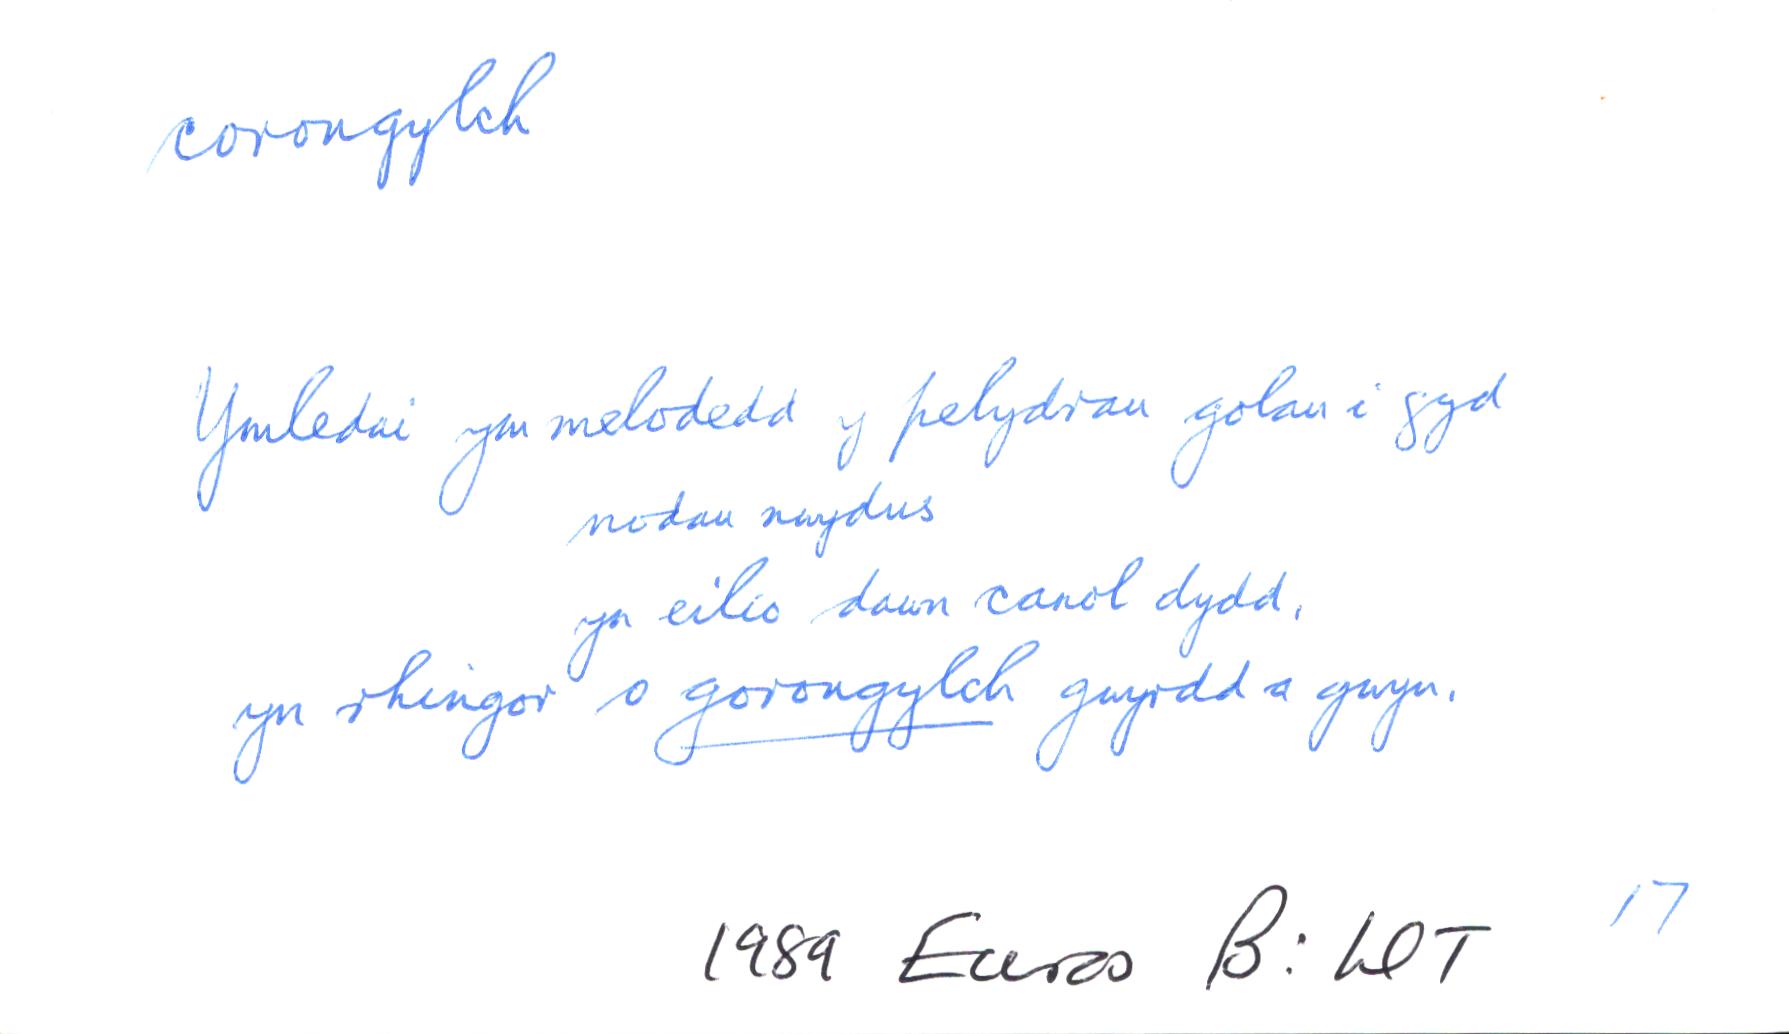 corongylch
Ymledai ym melodedd y pelydrau golau i gyd
nodau nwydus
yn eilio dawn canol dydd,
yn rhingor o gorongylch gwyrdd a gwyn.
1989 Euros B: LlT 17